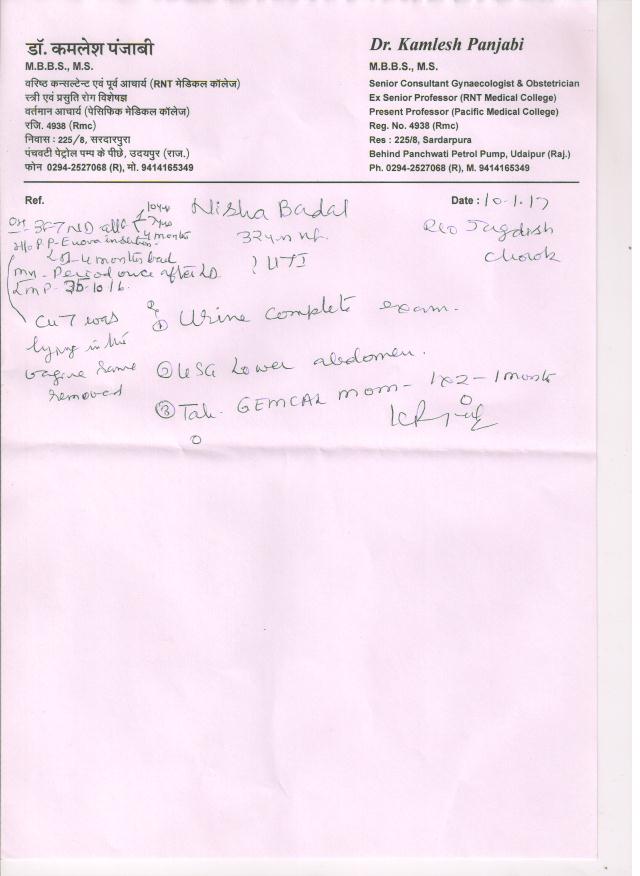 डॉ. कमलेश पंजाबी
M.B.B.S., M.S.
वरिष्ठ कन्सल्टेन्ट एवं पूर्व आचार्य (RNT मेडिकल कॉलेज)
स्त्री एवं प्रसुति रोग विशेषज्ञ
वर्तमान आचार्य (पेसिफिक मेडिकल कॉलेज)
रजि. 4938 (Rmc)
निवास : 225/8, सरदारपुरा
पंचवटी पेट्रोल पम्प के पीछे, उदयपुर (राज.)
फोन 0294-2527068 (R), मो. 9414165349
Dr. Kamlesh Panjabi
M.B.B.S., M.S.
Senior Consultant Gynaecologist & Obstetrician
Ex Senior Professor (RNT Medical College)
Present Professor (Pacific Medical College)
Reg. No. 4938 (Rmc)
Res : 225/8, Sardarpura
Behind Panchwati Petrol Pump, Udaipur (Raj.)
Ph. 0294-2527068 (R), M. 9414165349
Ref.
Date : 10.1.17
Nisha Badal
R/o Jagdish
Chowk
? UTI
4 months
LD - 4 months back
MH - Period once after LD
CuT was
lying in the
vagina same
removed
① Urine complete exam.
② USG Lower abdomen.
③ Tab. GEMCAL mom - 1x2 - 1 month